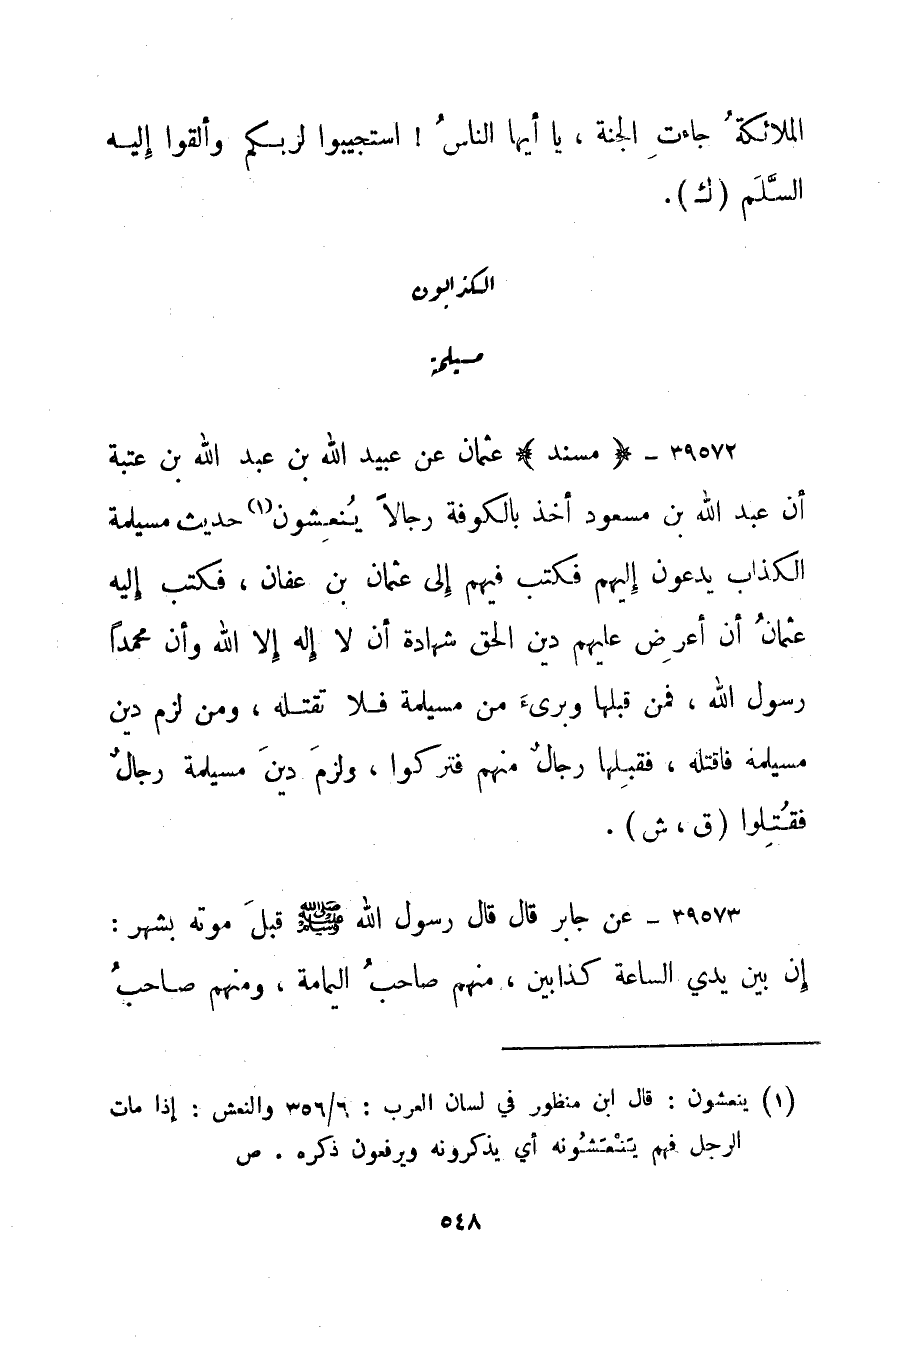 الملائكةُ جاءتِ الجنة ، يا أيها الناسُ ! استجيبوا لربكم وألقوا إليه
السَّلَم (ك) .
الكذابون
مسيلمة
٣٩٥٧٢ - ﴿ مسند ﴾ عثمان عن عبيد الله بن عبد الله بن عتبة
أن عبد الله بن مسعود أخذ بالكوفة رجالاً يُنعِشون(١) حديث مسيلمة
الكذاب يدعون إليهم فكتب فيهم إلى عثمان بن عفان ، فكتب إليه
عثمانُ أن أعرِض عليهم دين الحق شهادة أن لا إله إلا الله وأن محمداً
رسول الله ، فمن قبلها وبرىءَ من مسيلمة فلا تقتله ، ومن لزم دين
مسيلمة فاقتله ، فقبِلها رجالٌ منهم فتركوا ، ولزمَ دينَ مسيلمة رجالٌ
فقُتِلوا (ق ، ش) .
٣٩٥٧٣ - عن جابر قال قال رسول الله ﷺ قبلَ موته بشهر :
إن بين يدي الساعة كذابين ، منهم صاحبُ اليمامة ، ومنهم صاحبُ
(١) ينعشون : قال ابن منظور في لسان العرب : ٣٥٦/٦ والنعش : إذا مات
الرجل فهم يَنْعَشُونه أي يذكرونه ويرفعون ذكره . ص
٥٤٨